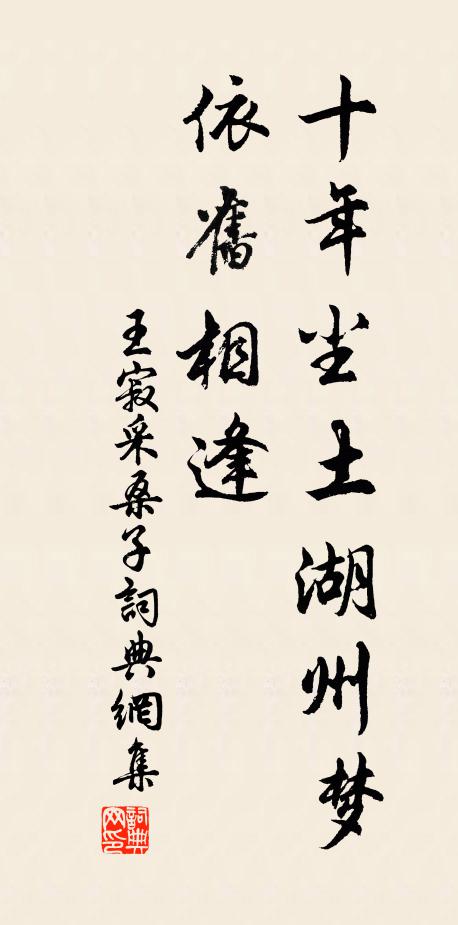 十年尘土湖州梦
依舊相逢
王寂采桑子詞典網集
詞典网印